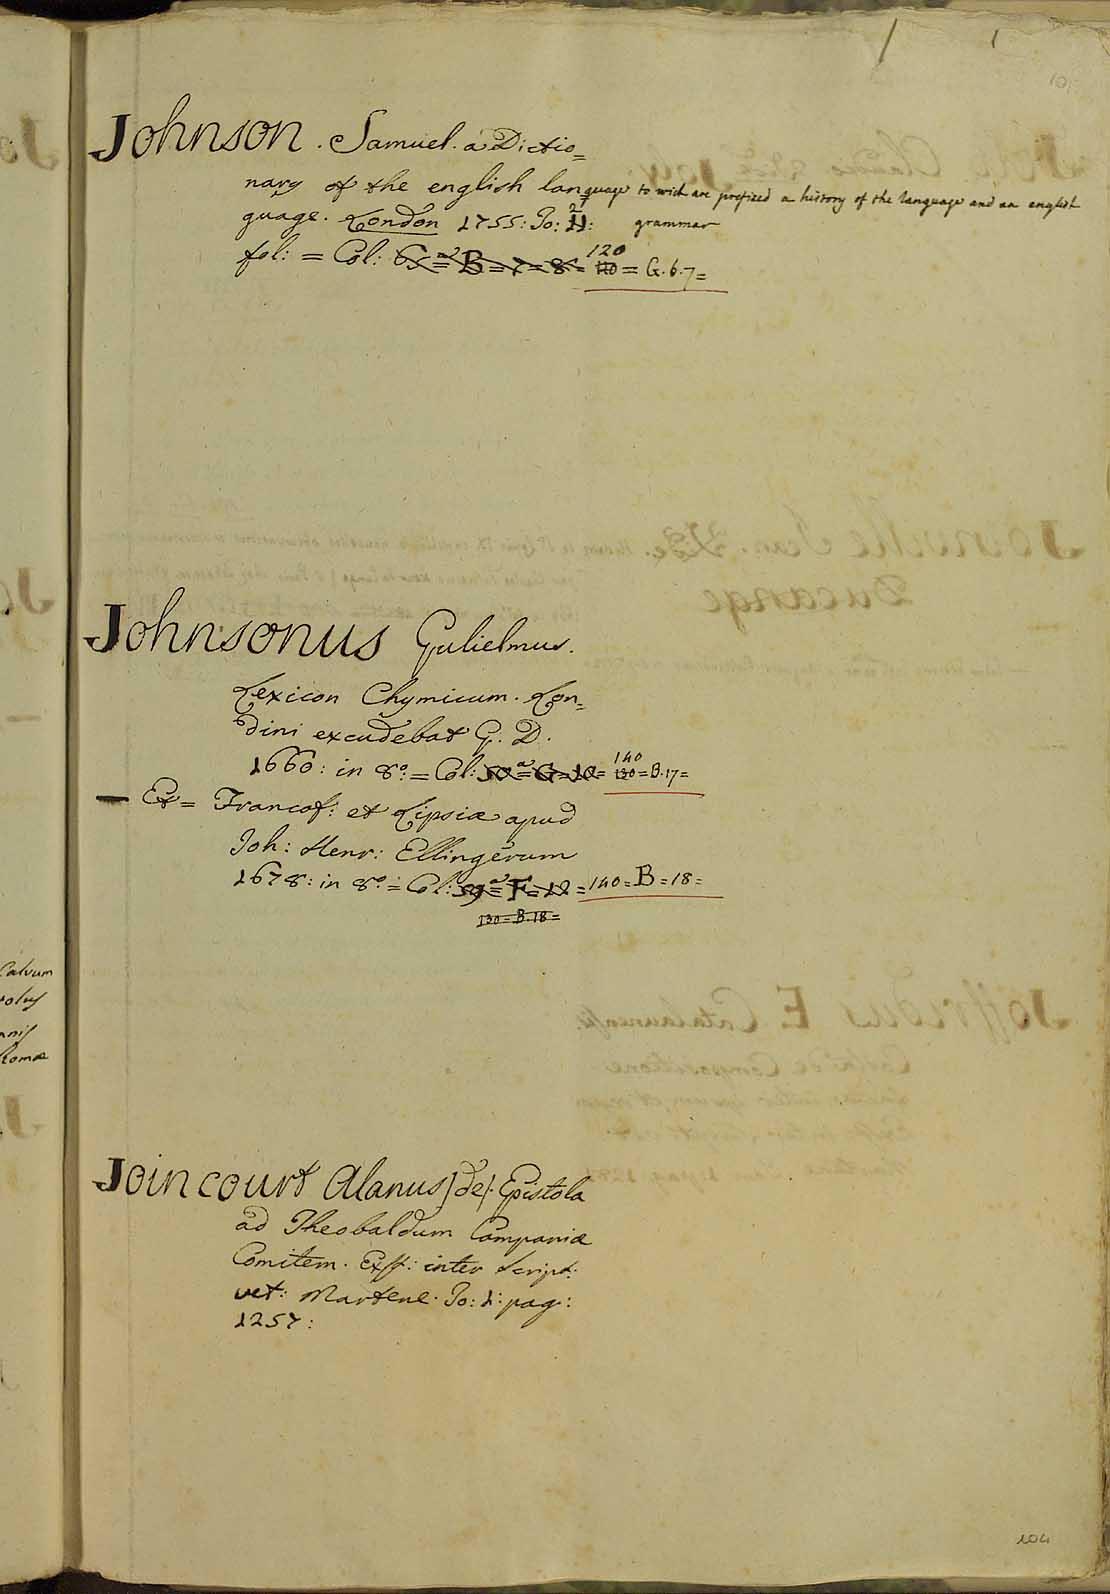 Johnson. Samuel. a Dictio=
nary of the english language to wich are prefixed a history of the language and an english
guage. London 1755: To: 2: grammar
fol: = Col: 65=B=7=8= 120 110 = G.6.7=
Johnsonus Gulielmus.
Lexicon Chymicum. Lon=
dini excudebat G. D.
1660: in 8º = Col: 50=G=10= 140 130=B.17=
— Ex= Francof: et Lipsiæ apud
Joh: Henr: Ellingerum
1678: in 8º = Col: 59=F=12=140=B=18=
130=B.18=
Joincourt Alanus) de). Epistola
ad Theobaldum Campaniæ
Comitem. Exst: inter Script:
vet: Martene. To: 1: pag:
1257:
Calvum
Romæ
104